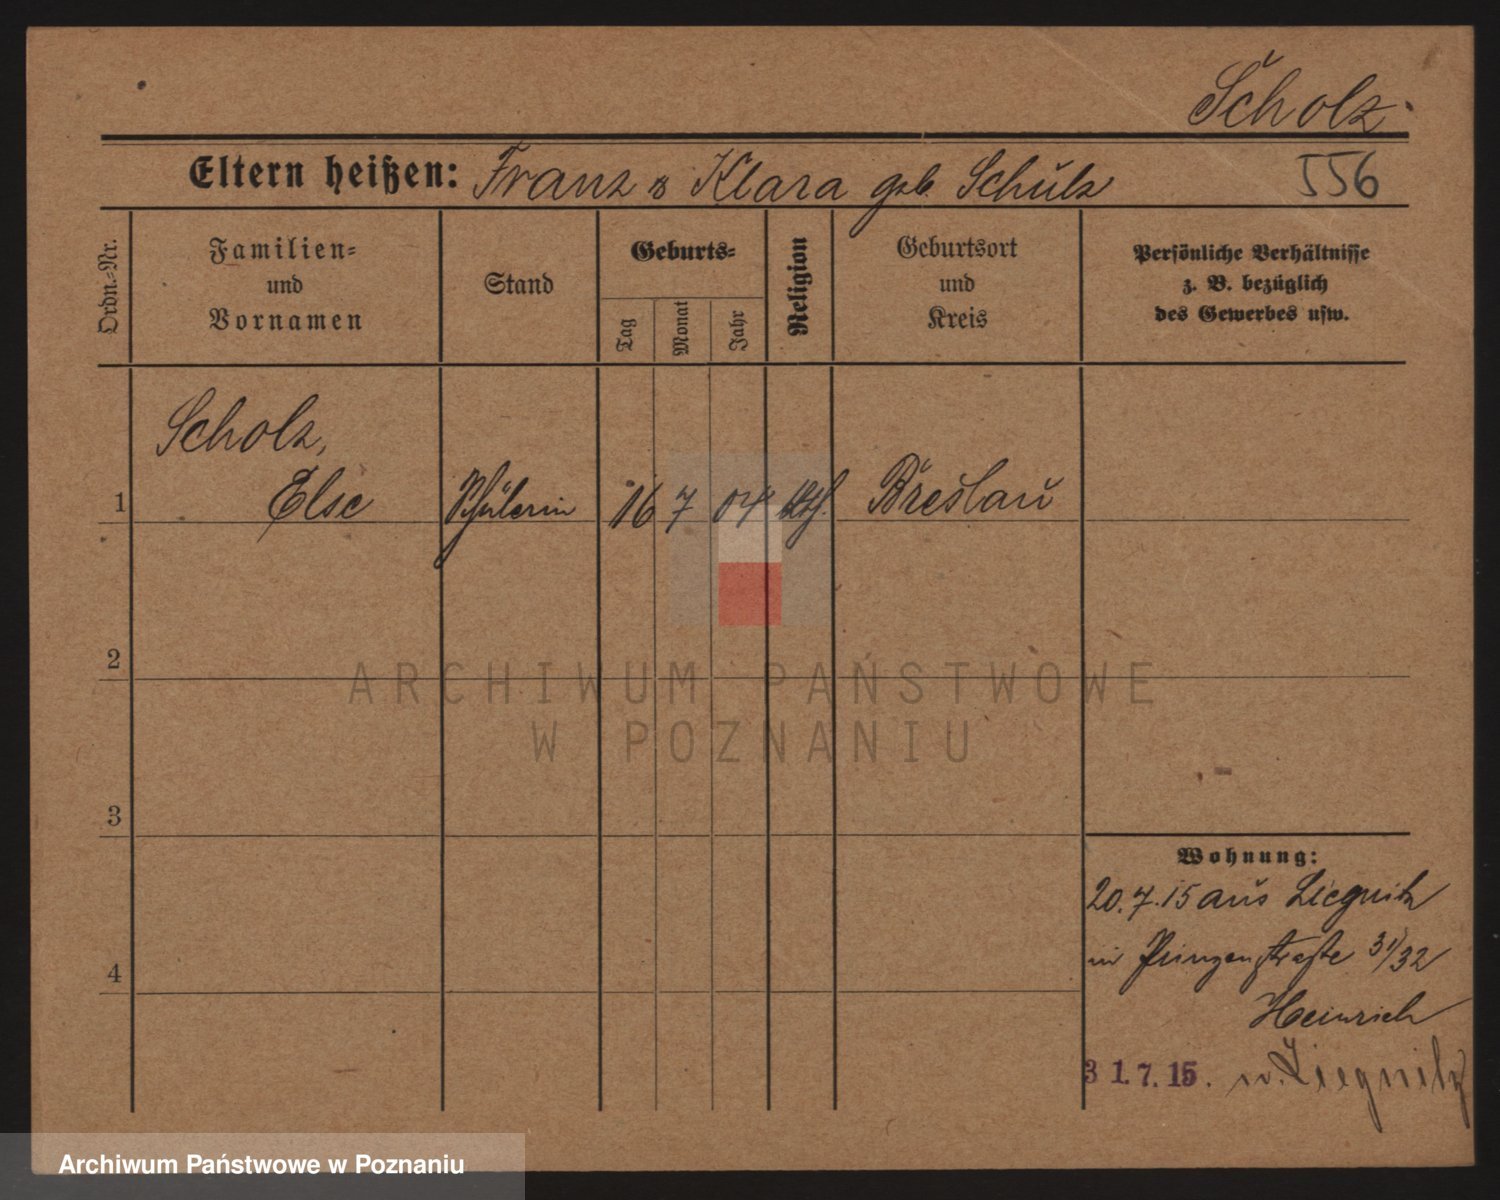 Scholz.
Eltern heißen: Franz & Klara geb. Schulz 556
Ordn.-Nr.
Familien-
und
Vornamen
Stand
Geburts-
Tag
Monat
Jahr
Religion
Geburtsort
und
Kreis
Persönliche Verhältnisse
z. B. bezüglich
des Gewerbes usw.
Scholz,
1 Else Schülerin 16 7 04 kth. Breslau
2
ARCHIWUM PAŃSTWOWE
W POZNANIU
3
Wohnung:
20.7.15 aus Liegnitz
in Prinzenstraße 31/32
4
Heinrich
31.7.15. n. Liegnitz
Archiwum Państwowe w Poznaniu